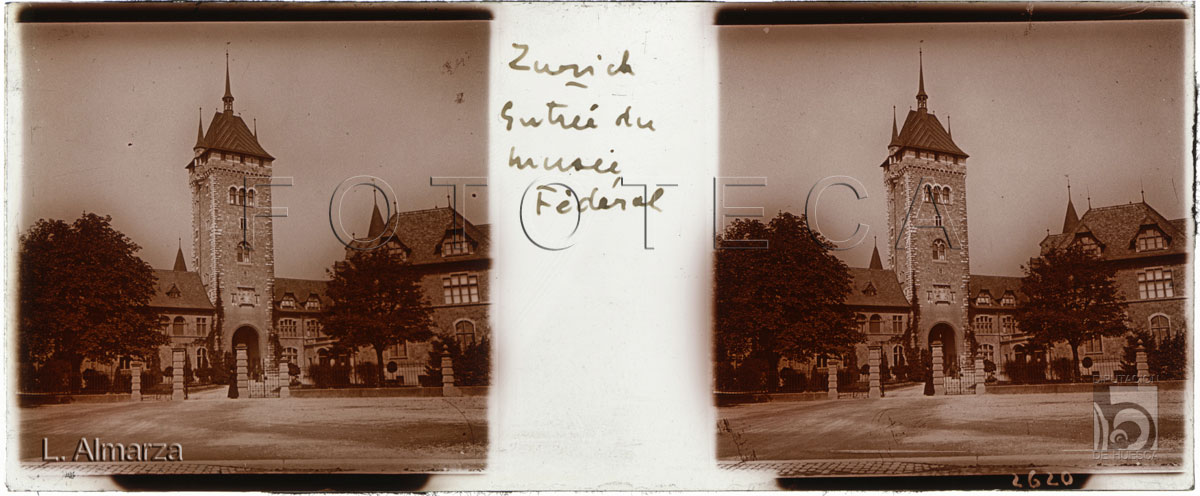 Zurich
Entrée du
musée
Fédéral
FOTOTECA
L. Almarza
DIPUTACIÓN
DE HUESCA
2620